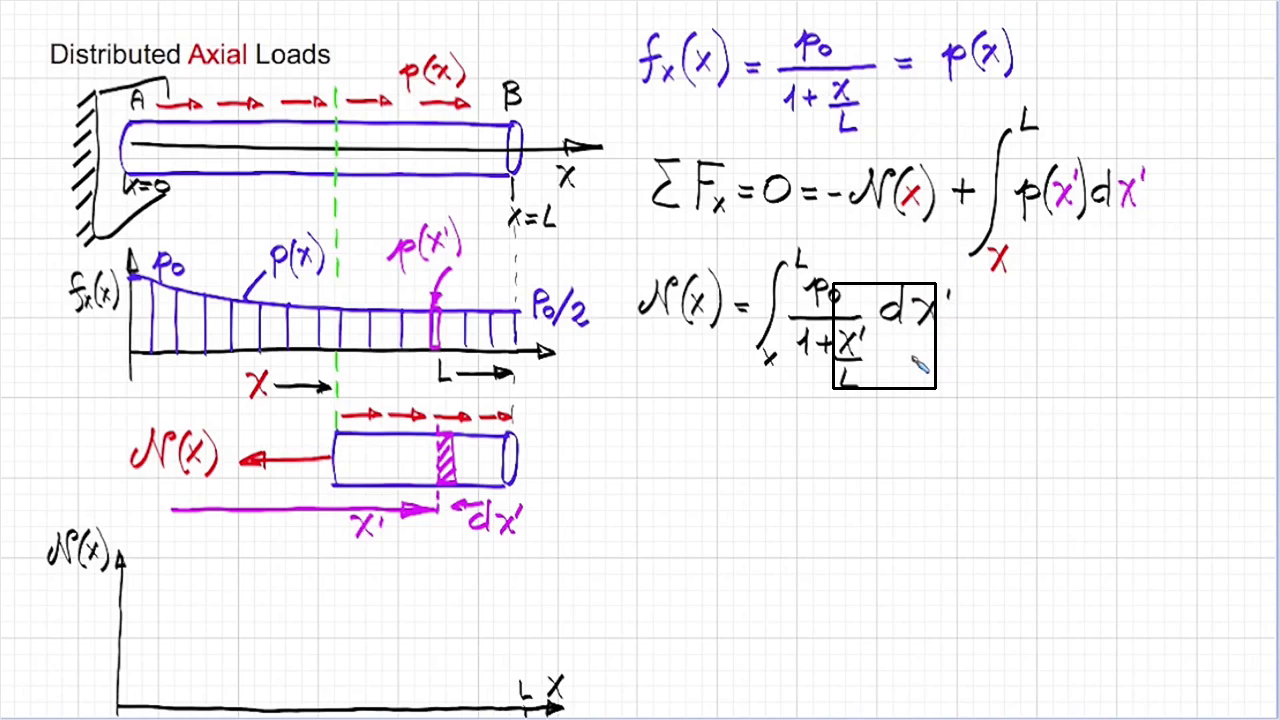 Distributed Axial Loads
p(x)
A
B
x=0
x
x=L
f_x(x)
p_0
p(x)
p(x')
p_0/2
x
L
N(x)
x'
dx'
N(x)
L
x
f_x(x) = p_0 / (1 + x/L) = p(x)
ΣF_x = 0 = -N(x) + ∫_x^L p(x')dx'
N(x) = ∫_x^L p_0 / (1 + x'/L) dx'